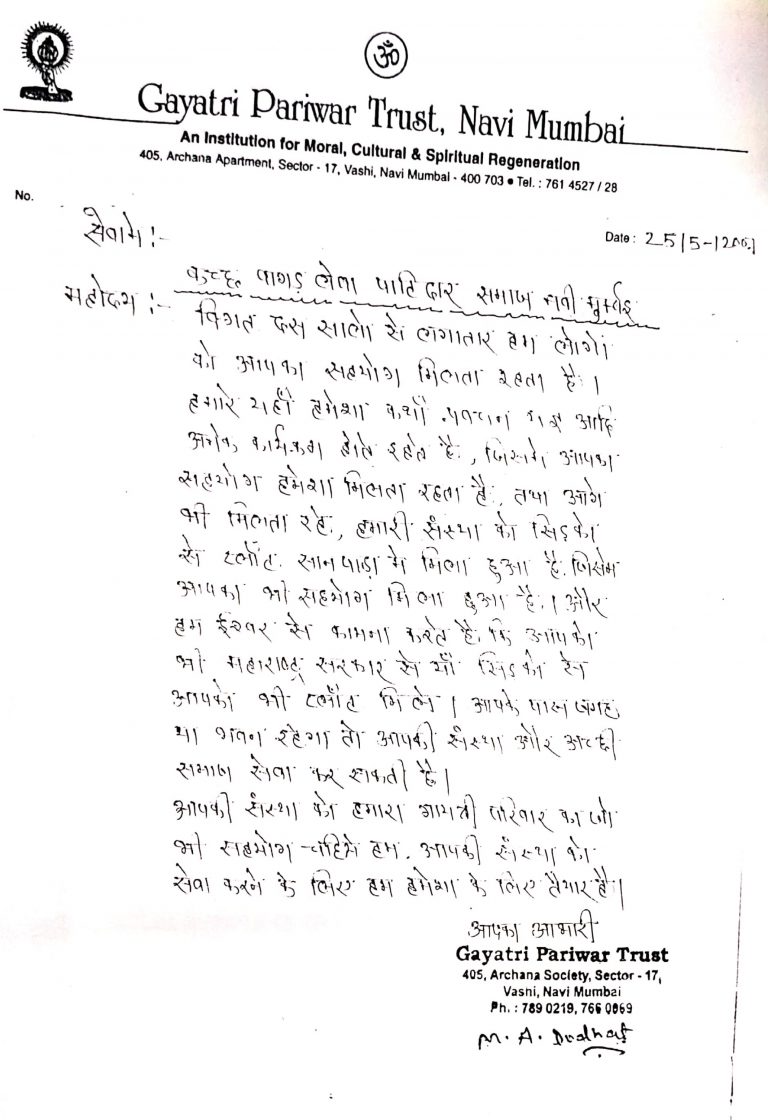 ॐ
Gayatri Pariwar Trust, Navi Mumbai
An Institution for Moral, Cultural & Spiritual Regeneration
405, Archana Apartment, Sector - 17, Vashi, Navi Mumbai - 400 703 ● Tel. : 761 4527 / 28
No.
Date : 25/5-/2001
सेवामे :-
महोदय :- कच्छ वागड लेवा पाटिदार समाज नवी मुम्बई
विगत दस सालो से लगातार हम लोगो
को आपका सहयोग मिलता रहता है ।
हमारे यहाँ हमेशा कथा प्रवचन यज्ञ आदि
अनेक कार्यक्रम होते रहते है, जिसमे आपका
सहयोग हमेशा मिलता रहता है, तथा आगे
भी मिलता रहे, हमारी संस्था को सिडको
से प्लॉट सानपाडा मे मिला हुआ है, जिसमे
आपका भी सहयोग मिला हुआ है । और
हम ईश्वर से कामना करते है, कि आपको
भी महाराष्ट्र सरकार से याँ सिडको से
आपको भी प्लॉट मिले । आपके पास जगह
या भवन रहेगा तो आपकी संस्था और अच्छी
समाज सेवा कर सकती है ।
आपकी संस्था को हमारा गायत्री परिवार का जो
भी सहयोग चहिये हम, आपकी संस्था को
सेवा करने के लिए हम हमेशा के लिए तैयार है ।
आपका आभारी
Gayatri Pariwar Trust
405, Archana Society, Sector - 17,
Vashi, Navi Mumbai
Ph. : 789 0219, 766 0069
M. A.